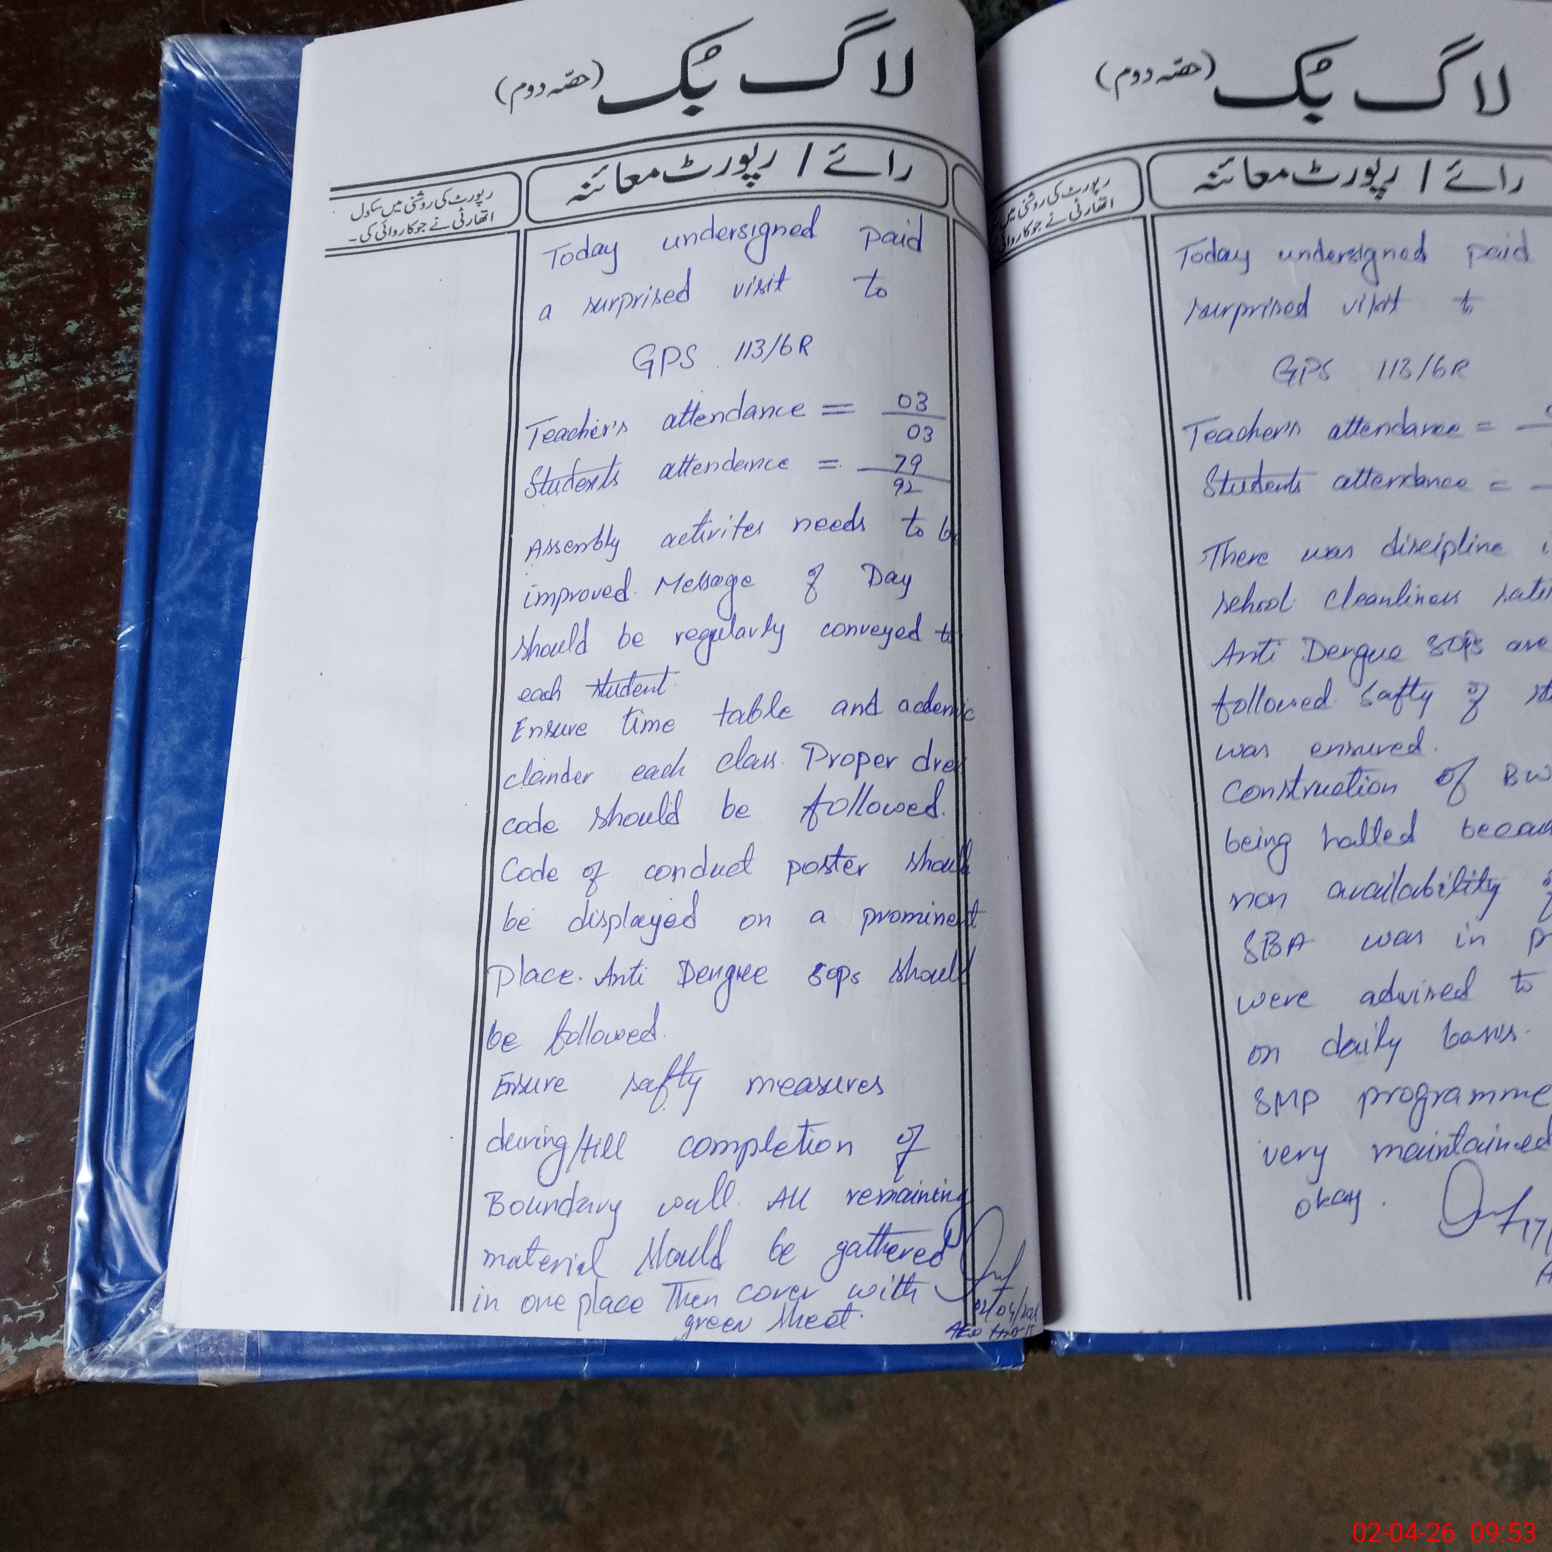 لاگ بُک (حصّہ دوم)
رائے / رپورٹ معائنہ
رپورٹ کی روشنی میں سکول
اتھارٹی نے جو کاروائی کی۔
Today undersigned paid
a surprised visit to
GPS 113/6R
Teacher's attendance = 03/03
Students attendance = 79/92
Assembly activites needs to be
improved. Message of Day
should be regularly conveyed to
each student.
Ensure time table and academic
clander each class. Proper dress
code should be followed.
Code of conduct poster should
be displayed on a prominent
place. Anti Dengue sops should
be followed.
Ensure safty measures
during/till completion of
Boundary wall. All remaining
material should be gathered
in one place Then cover with
green sheet.
لاگ بُک (حصّہ دوم)
رائے / رپورٹ معائنہ
رپورٹ کی روشنی میں
اتھارٹی نے جو کاروائی
Today undersigned paid
surprised visit to
GPS 113/6R
Teacher's attendance =
Students attendance =
There was discipline
school. Cleanliness
Anti Dengue SOPs are
followed. Safty of
was ensured.
Construction of
being halted
non availability of
SBA was in
were advised to
on daily basis.
SMP programme
very maintained
okay.
02-04-26 09:53